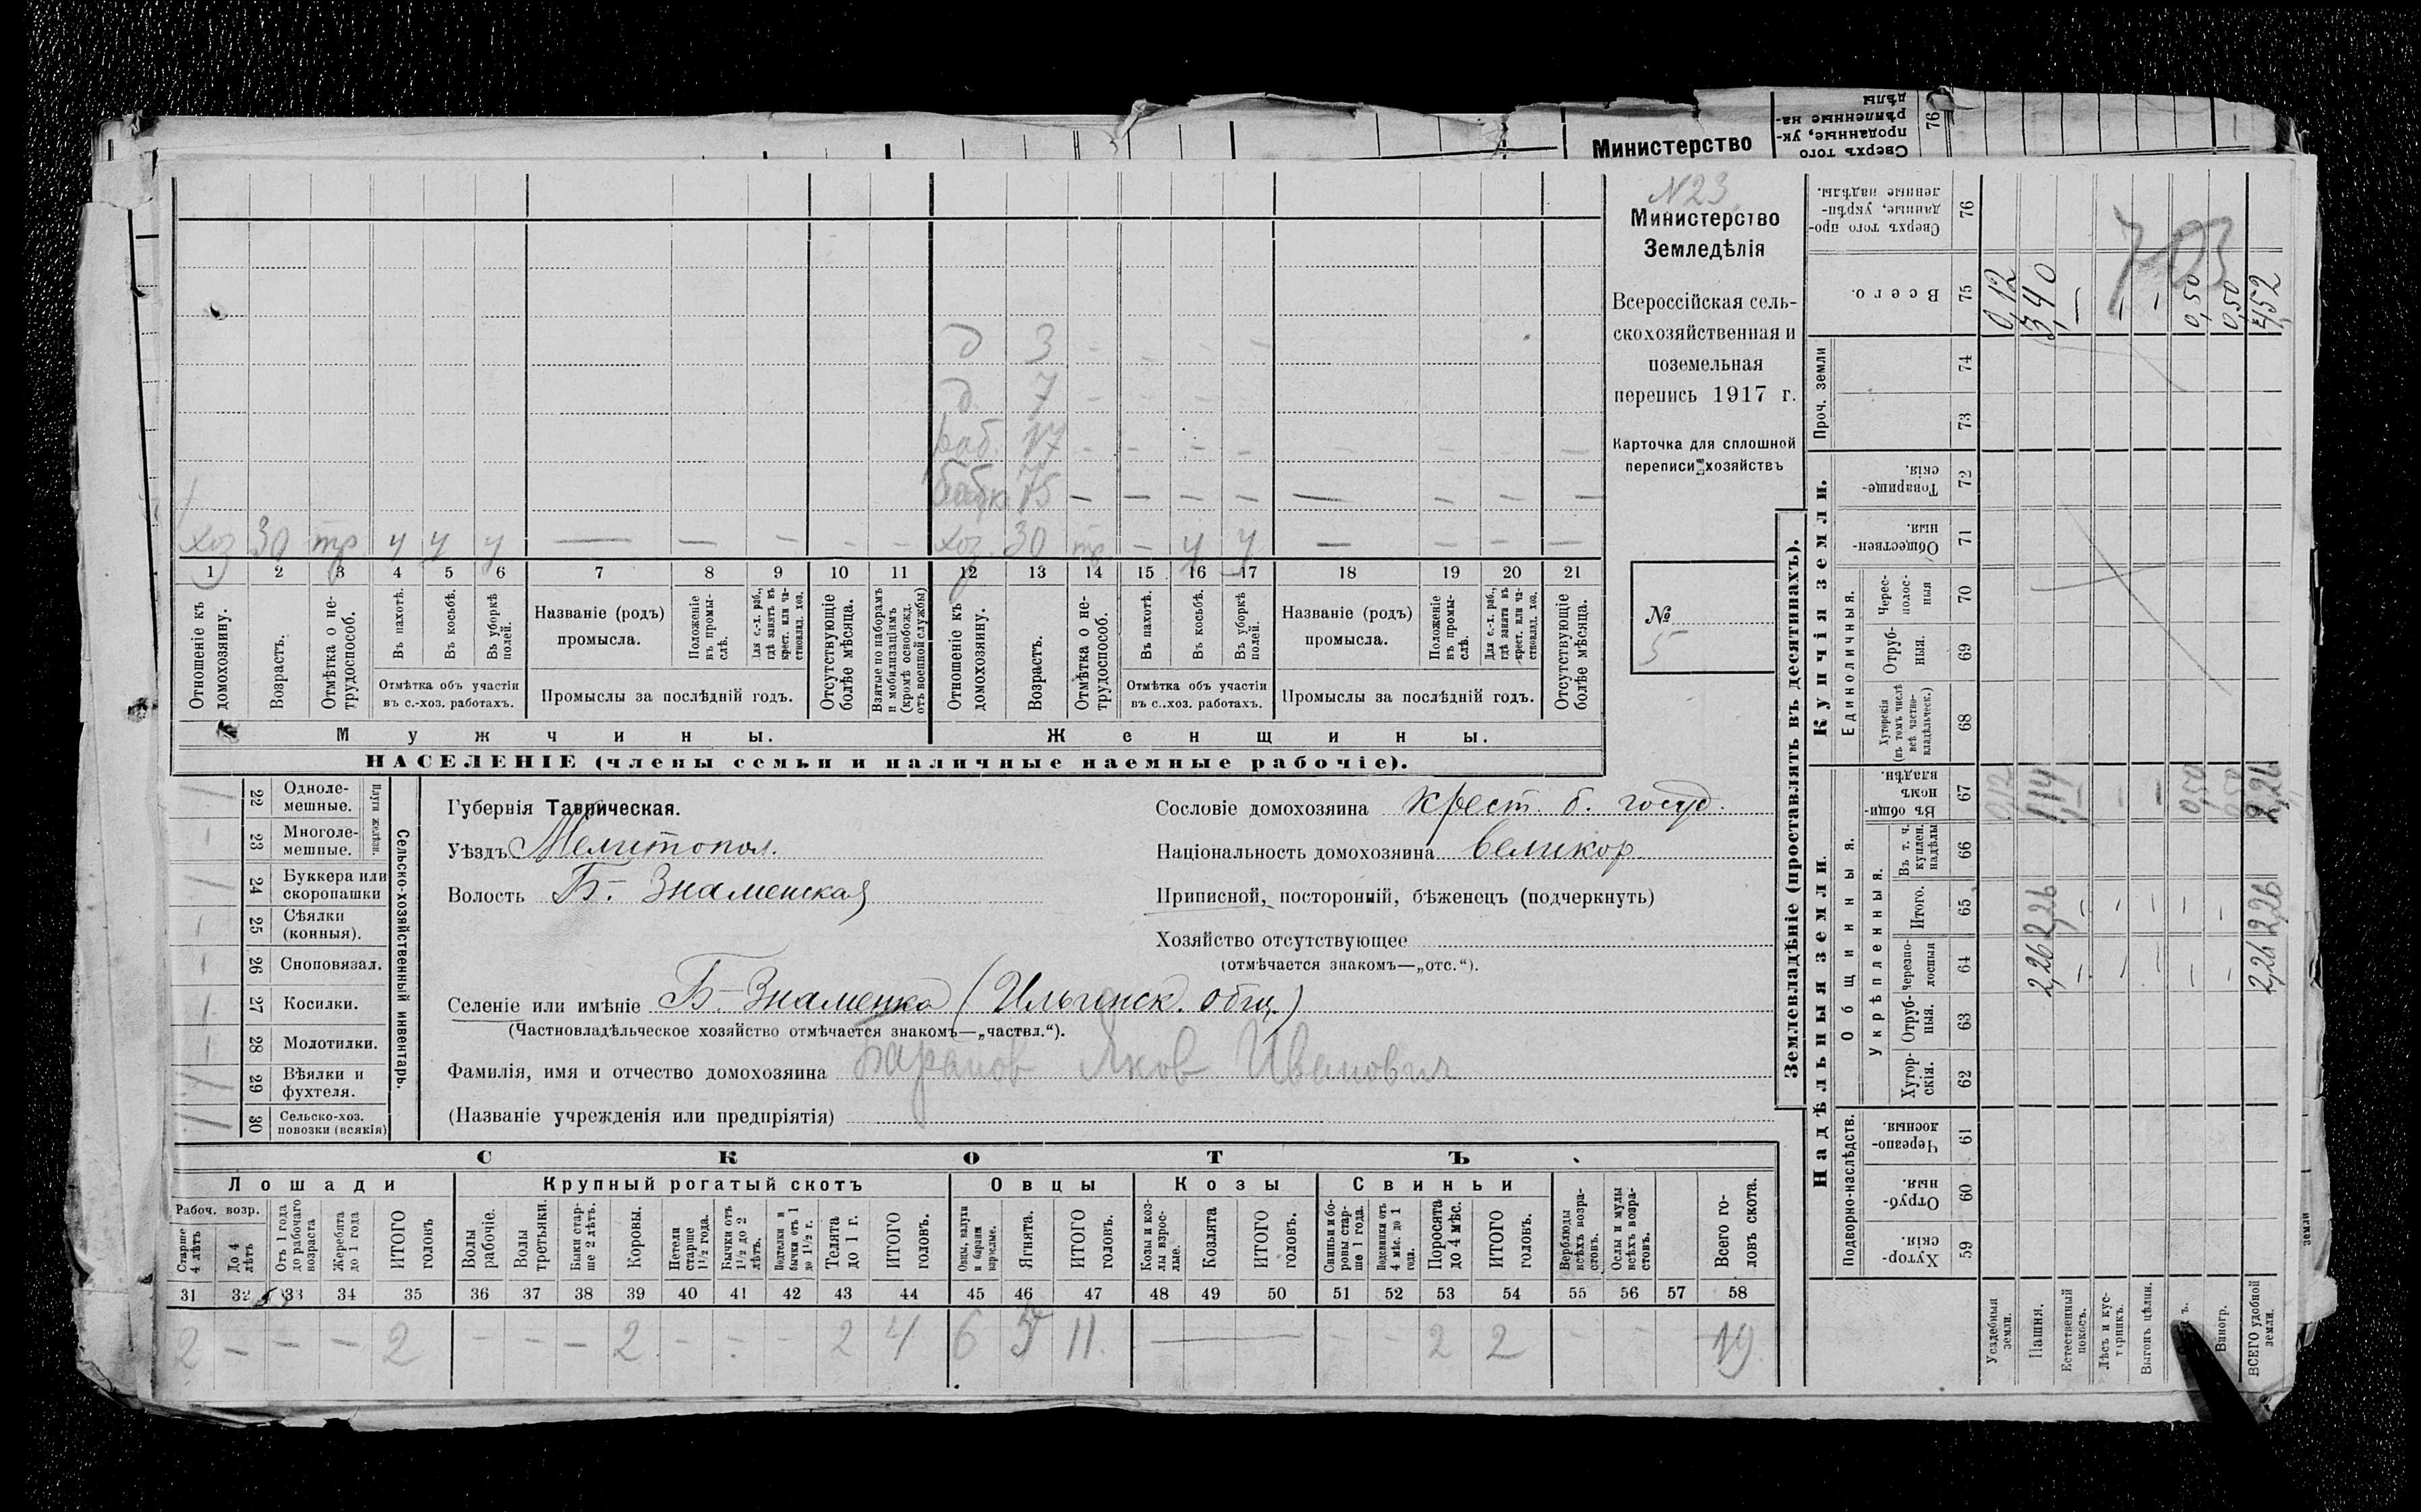 Министерство
Сверхъ того
проданные, ук-
рѣпленные на-
дѣлы
76
N23
Министерство
Земледѣлія
Всероссійская сель-
скохозяйственная и
поземельная
перепись 1917 г.
Карточка для сплошной
переписи хозяйствъ
№
5
д 3 - - - -
д. 7 - - - -
раб. 17 - - - - - - - -
бабк. 75 - - - - - - - -
хоз 30 тр у у у - - - - - хоз. 30 тр - у у - - - -
1 2 3 4 5 6 7 8 9 10 11 12 13 14 15 16 17 18 19 20 21
Отношеніе къ домохозяину.
Возрастъ.
Отмѣтка о не-трудоспособ.
Въ пахотѣ.
Въ косьбѣ.
Въ уборкѣ полей.
Отмѣтка объ участіи
въ с.-хоз. работахъ.
Названіе (родъ)
промысла.
Положеніе въ промы-слѣ.
Для с.-х. раб., гдѣ занятъ въ крест. или ча-стновлад. хоз.
Промыслы за послѣдній годъ.
Отсутствующіе болѣе мѣсяца.
Взятые по наборамъ и мобилизаціямъ (кромѣ освобожд. отъ военной службы)
Отношеніе къ домохозяину.
Возрастъ.
Отмѣтка о не-трудоспособ.
Въ пахотѣ.
Въ косьбѣ.
Въ уборкѣ полей.
Отмѣтка объ участіи
въ с..хоз. работахъ.
Названіе (родъ)
промысла.
Положеніе въ промы-слѣ.
Для с.-х. раб., гдѣ занята въ крест. или ча-стновлад. хоз.
Промыслы за послѣдній годъ.
Отсутствующіе болѣе мѣсяца.
Мужчины.
Женщины.
НАСЕЛЕНІЕ (члены семьи и наличные наемные рабочіе).
22 Одноле-мешные.
23 Многоле-мешные.
Плуги желѣзн.
24 Буккера или скоропашки
25 Сѣялки (конныя).
26 Сноповязал.
27 Косилки.
28 Молотилки.
29 Вѣялки и фухтеля.
30 Сельско-хоз. повозки (всякія)
Сельско-хозяйственный инвентарь.
Губернія Таврическая.
Уѣздъ Мелитопол.
Волость Б.- Знаменская
Сословіе домохозяина крест. б. госуд.
Національность домохозяина великор.
Приписной, посторонній, бѣженецъ (подчеркнуть)
Хозяйство отсутствующее
(отмѣчается знакомъ—„отс.“).
Селеніе или имѣніе Б-Знаменка (Ильинск. общ.)
(Частновладѣльческое хозяйство отмѣчается знакомъ—„частвл.“).
Фамилія, имя и отчество домохозяина Баранов Яков Иванович
(Названіе учрежденія или предпріятія)
СКОТЪ.
Лошади
Крупный рогатый скотъ
Овцы
Козы
Свиньи
Рабоч. возр.
Старше 4 лѣтъ
До 4 лѣтъ
Отъ 1 года до рабочаго возраста
Жеребята до 1 года
ИТОГО головъ
Волы рабочіе.
Волы третьяки.
Быки стар-ше 2 лѣтъ.
Коровы.
Нетели старше 1½ года.
Бычки отъ 1½ до 2 лѣтъ.
Подтелки и бычки отъ 1 до 1½ г.
Телята до 1 г.
ИТОГО головъ.
Овцы, валухи и бараны взрослые.
Ягнята.
ИТОГО головъ.
Козы и коз-лы взрос-лые.
Козлята
ИТОГО головъ.
Свиньи и бо-ровы стар-ше 1 года.
Подсвинки отъ 4 мѣс. до 1 года.
Поросята до 4 мѣс.
ИТОГО головъ.
Верблюды всѣхъ возра-стовъ.
Ослы и мулы всѣхъ возра-стовъ.
Всего го-ловъ скота.
31 32 33 34 35 36 37 38 39 40 41 42 43 44 45 46 47 48 49 50 51 52 53 54 55 56 57 58
2 - - - 2 - - - 2 - - - 2 4 6 5 11 - - - 2 2 - - 19
Землевладѣніе (проставлять въ десятинахъ).
Надѣльныя земли.
Купчія земли.
Проч. земли
Подворно-наслѣдств.
Общинныя.
Укрѣпленныя.
Единоличныя.
59 Хутор-скія.
60 Отруб-ныя.
61 Черезпо-лосныя.
62 Хутор-скія.
63 Отруб-ныя.
64 черезпо-лосныя
65 Итого.
66 Въ т. ч. куплен. надѣлы
67 Въ общин-номъ владѣн.
68 Хуторскія (въ томъ числѣ всѣ частно-владѣльческ.)
69 Отруб-ныя.
70 Черес-полос-ныя
71 Обществен-ныя.
72 Товарище-скія.
73
74
75 Всего.
76 Сверхъ того про-данные, укрѣп-ленные надѣлы.
Усадебныя земли. 0,12 0,12
Пашня. 2,26 2,26 1,14 3,40
Естественный покосъ. - - - -
Лѣсъ и кус-тарникъ. - - - -
Выгонъ цѣлин. - - - -
- - 0,50 0,50
Виногр. - - 0,50 0,50
ВСЕГО удобной земли. 2,26 2,26 2,26 4,52
7-03
земли